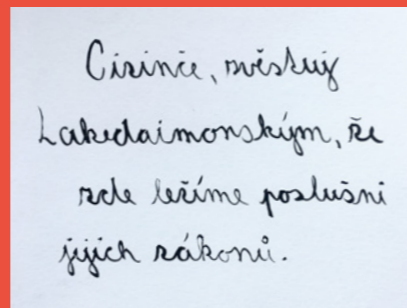 Cizinče, zvěstuj
Lakedaimonským, že
zde ležíme poslušni
jejich zákonů.